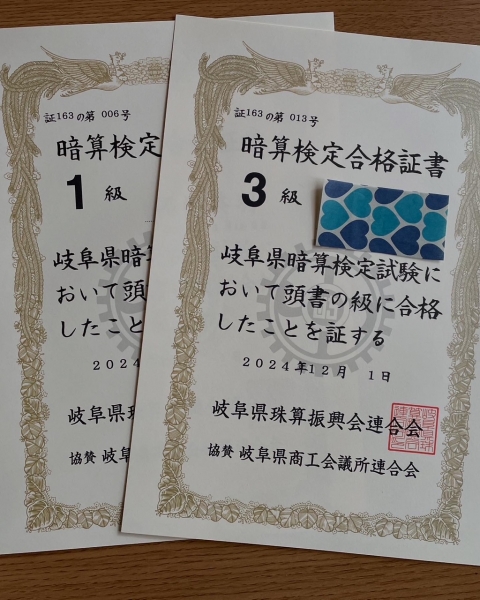 証163の第 006号
暗算検定
1 級
岐阜県暗算
おいて頭書
したこと
2024
岐阜県珠
協賛 岐阜
証163の第 013号
暗算検定合格証書
3 級
岐阜県暗算検定試験に
おいて頭書の級に合格
したことを証する
2024年12月 1日
岐阜県珠算振興会連合会
協賛 岐阜県商工会議所連合会